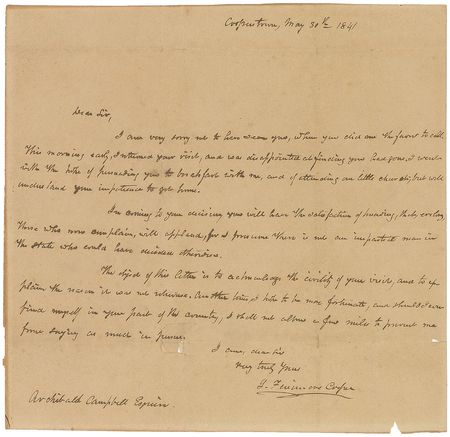 Cooperstown, May 30th 1841
Dear Sir,
I am very sorry not to have seen you, when you did me the favor to call.
This morning early, I returned your visit, and was disappointed at finding you had gone. I went
with the hope of persuading you to breakfast with me, and of extending our little chat, but well
understand your impatience to get home.
In coming to your decision you will have the satisfaction of knowing, that, even
those who now complain, will applaud, for I presume there is not an impartial man in
the state who could have decided otherwise.
The object of this letter is to acknowledge the civility of your visit, and to ex-
plain the reason it was not returned. Another time, I hope to be more fortunate, and should I ever
find myself in your part of the country, I shall not allow a few miles to prevent me
from saying as much in person.
I am, dear sir
very truly yours
J. Fenimore Cooper
Archibald Campbell Esquire.